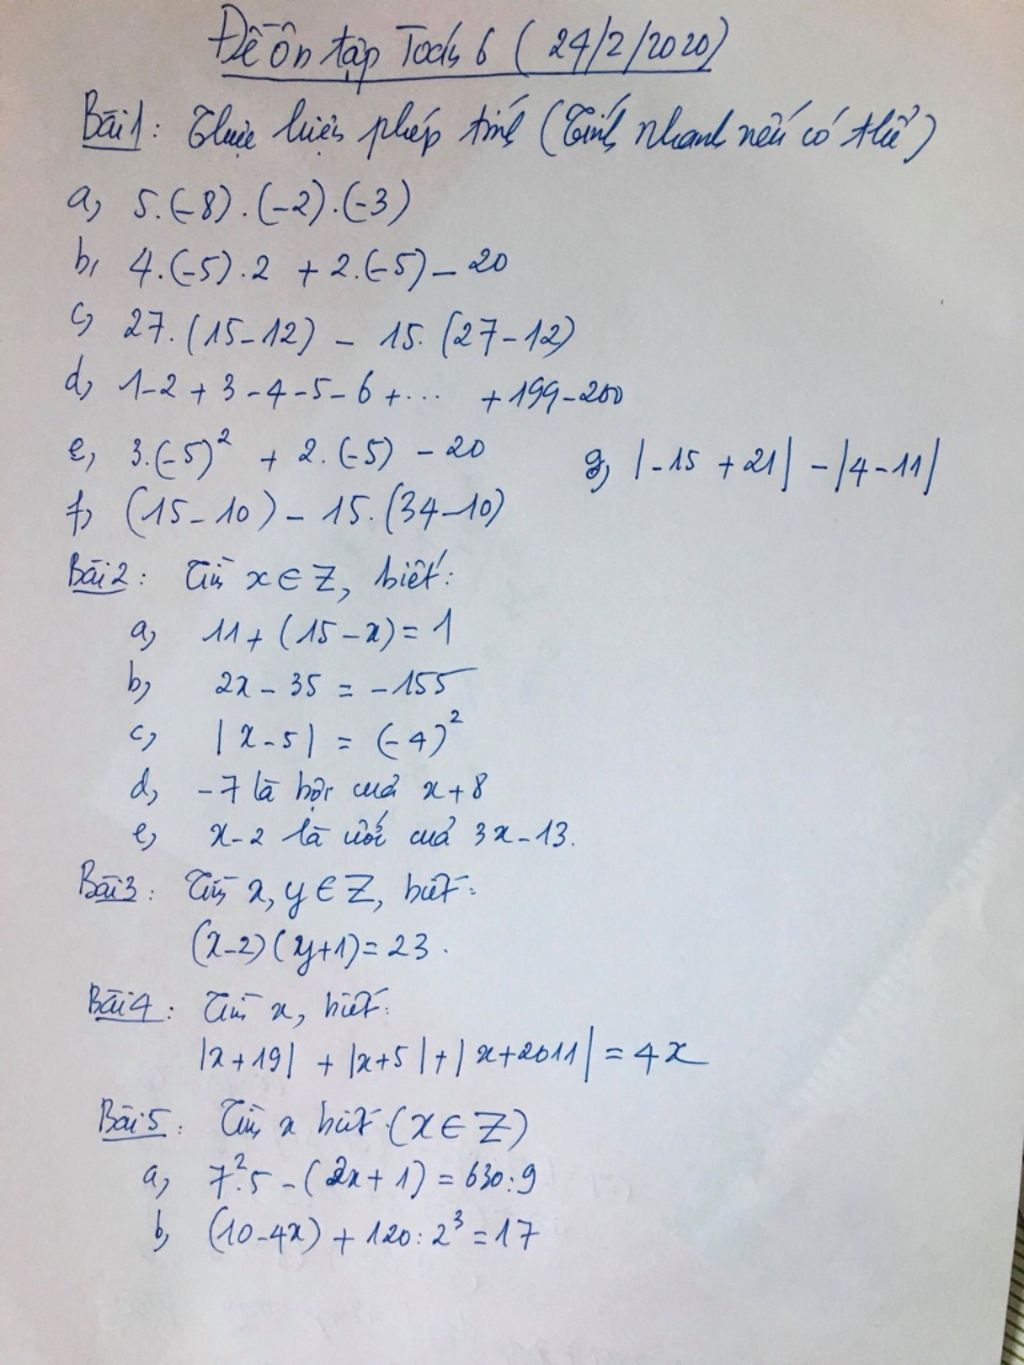 Đề ôn tập Toán 6 ( 24/2/2020)
Bài 1: Thực hiện phép tính (Tính nhanh nếu có thể)
a, 5.(-8).(-2).(-3)
b, 4.(-5).2 + 2.(-5) - 20
c, 27.(15-12) - 15.(27-12)
d, 1-2+3-4-5-6+... +199-200
e, 3.(-5)² + 2.(-5) - 20
g, |-15 + 21| - |4-11|
f, (15-10) - 15.(34-10)
Bài 2: Tìm x ∈ Z, biết:
a, 11 + (15-x) = 1
b, 2x - 35 = -155
c, |x-5| = (-4)²
d, -7 là bội của x+8
e, x-2 là ước của 3x-13.
Bài 3: Tìm x, y ∈ Z, biết:
(x-2)(y+1)=23.
Bài 4: Tìm x, biết:
|x+19| + |x+5| + |x+2011| = 4x
Bài 5: Tìm x biết (x ∈ Z)
a, 7².5 - (2x+1) = 630:9
b, (10-4x) + 120:2³ = 17